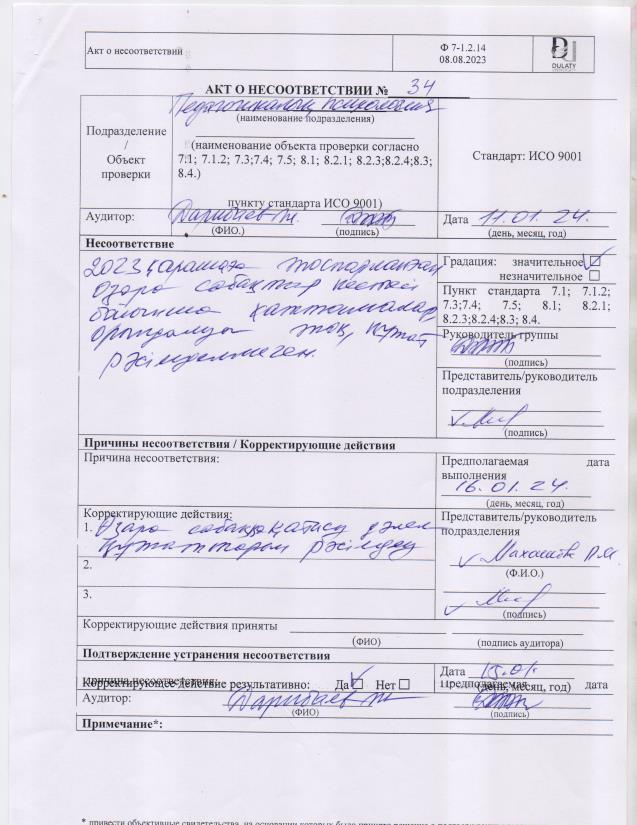 Акт о несоответствий
Ф 7-1.2.14
08.08.2023
DULATY
АКТ О НЕСООТВЕТСТВИИ № 34
Подразделение
/
Объект
проверки
Педагогикалық психология
(наименование подразделения)
(наименование объекта проверки согласно
7.1; 7.1.2; 7.3;7.4; 7.5; 8.1; 8.2.1; 8.2.3;8.2.4;8.3;
8.4.)
пункту стандарта ИСО 9001)
Стандарт: ИСО 9001
Аудитор:
(ФИО.) (подпись)
Дата 11.01.24.
(день, месяц, год)
Несоответствие
2023 қарашаға жоспарланған
Өзара сабақтар кестесі
бойынша хаттамалар
орындалуы жоқ, құжат
рәсімделмеген.
Градация: значительное
незначительное
Пункт стандарта 7.1; 7.1.2;
7.3;7.4; 7.5; 8.1; 8.2.1;
8.2.3;8.2.4;8.3; 8.4.
Руководитель группы
(подпись)
Представитель/руководитель
подразделения
(подпись)
Причины несоответствия / Корректирующие действия
Причина несоответствия:
Предполагаемая дата
выполнения
16.01.24.
(день, месяц, год)
Корректирующие действия:
1. Өзара сабаққа қатысу
құжаттарын рәсімдеу
2.
3.
Представитель/руководитель
подразделения
(Ф.И.О.)
(подпись)
Корректирующие действия приняты
(ФИО) (подпись аудитора)
Подтверждение устранения несоответствия
Причина несоответствия:
Корректирующее действие результативно: Да Нет
Дата 15.01.
Предполагаемая дата
(день, месяц, год)
Аудитор:
(ФИО) (подпись)
Примечание*: